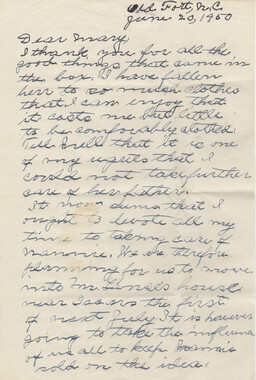 Old Fort, N.C.
June 20, 1950
Dear Mary,
I thank you for all the
good things that came in
the box. I have fallen
heir to so much clothes
that I can enjoy that
it costs me but little
to be comforably clothed.
Tell Brell that it is one
of my regrets that I
could not take further
care of her father.
It now seems that I
ought to devote all my
time to taking care of
Mammie. We are therefore
planning for us to move
into Mr. house
near Isaacs the first
of next July. It is however
going to take the influence
of us all to keep Mammie
sold on the idea.